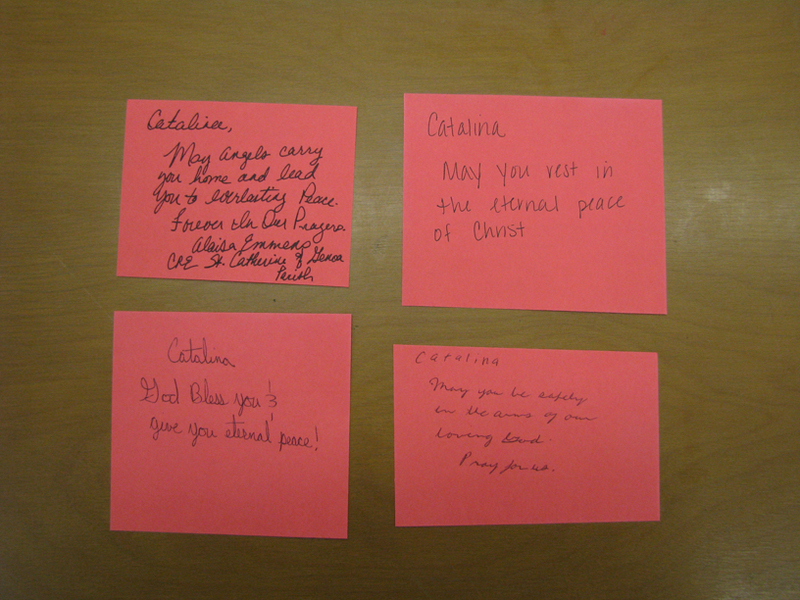 Catalina,
May Angels carry
you home and lead
you to everlasting Peace.
Forever In Our Prayers.
Emmens
CRE St. Catherine of Genoa
Parish
Catalina
May you rest in
the eternal peace
of Christ
Catalina
God Bless you &
give you eternal peace!
Catalina
May you be safely
in the arms of our
loving
Pray for us.